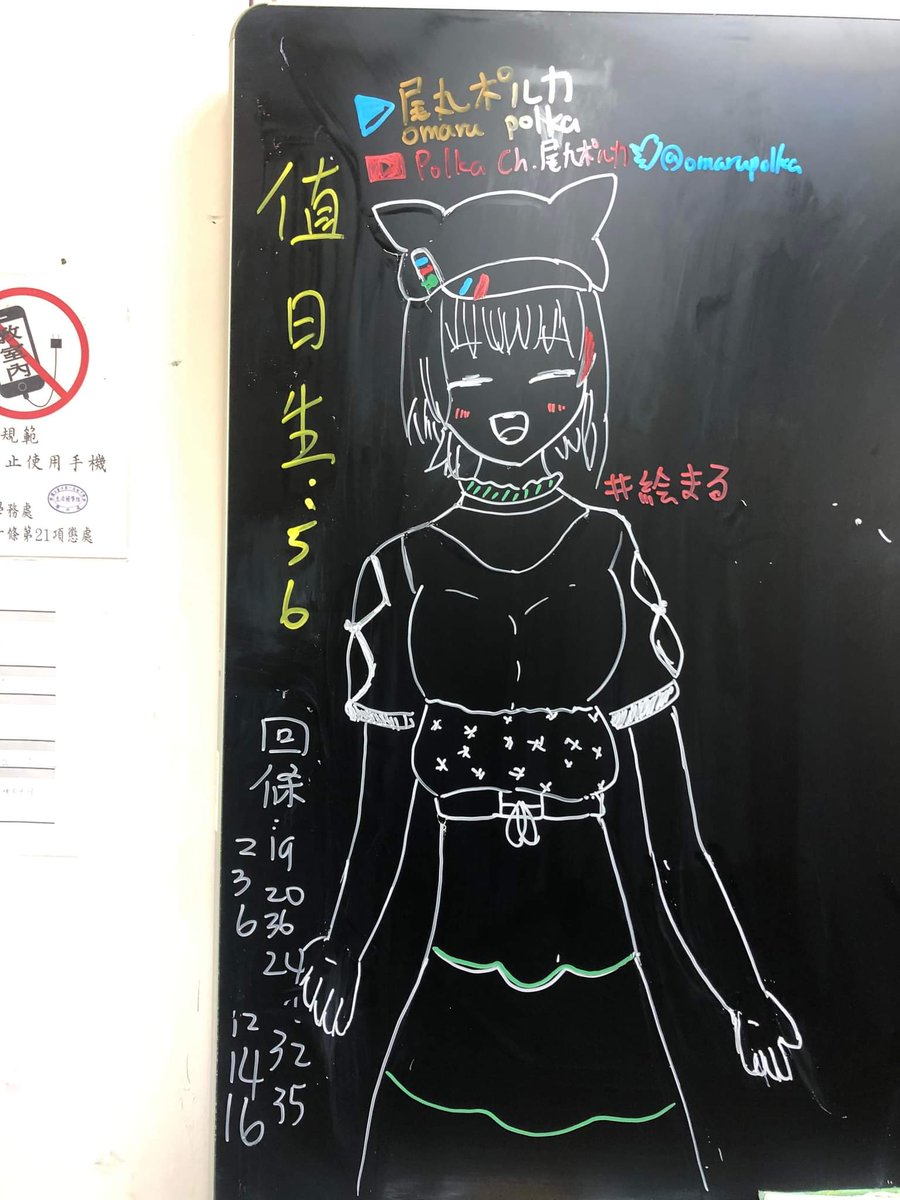 尾丸ポルカ
omaru polka
Polka Ch.尾丸ポルカ
@omarupolka
#絵まる
值日生:56
回條:
19
20
36
24
32
35
2
3
6
12
14
16
教室內
規範
止使用手機
學務處
條第21項懲處